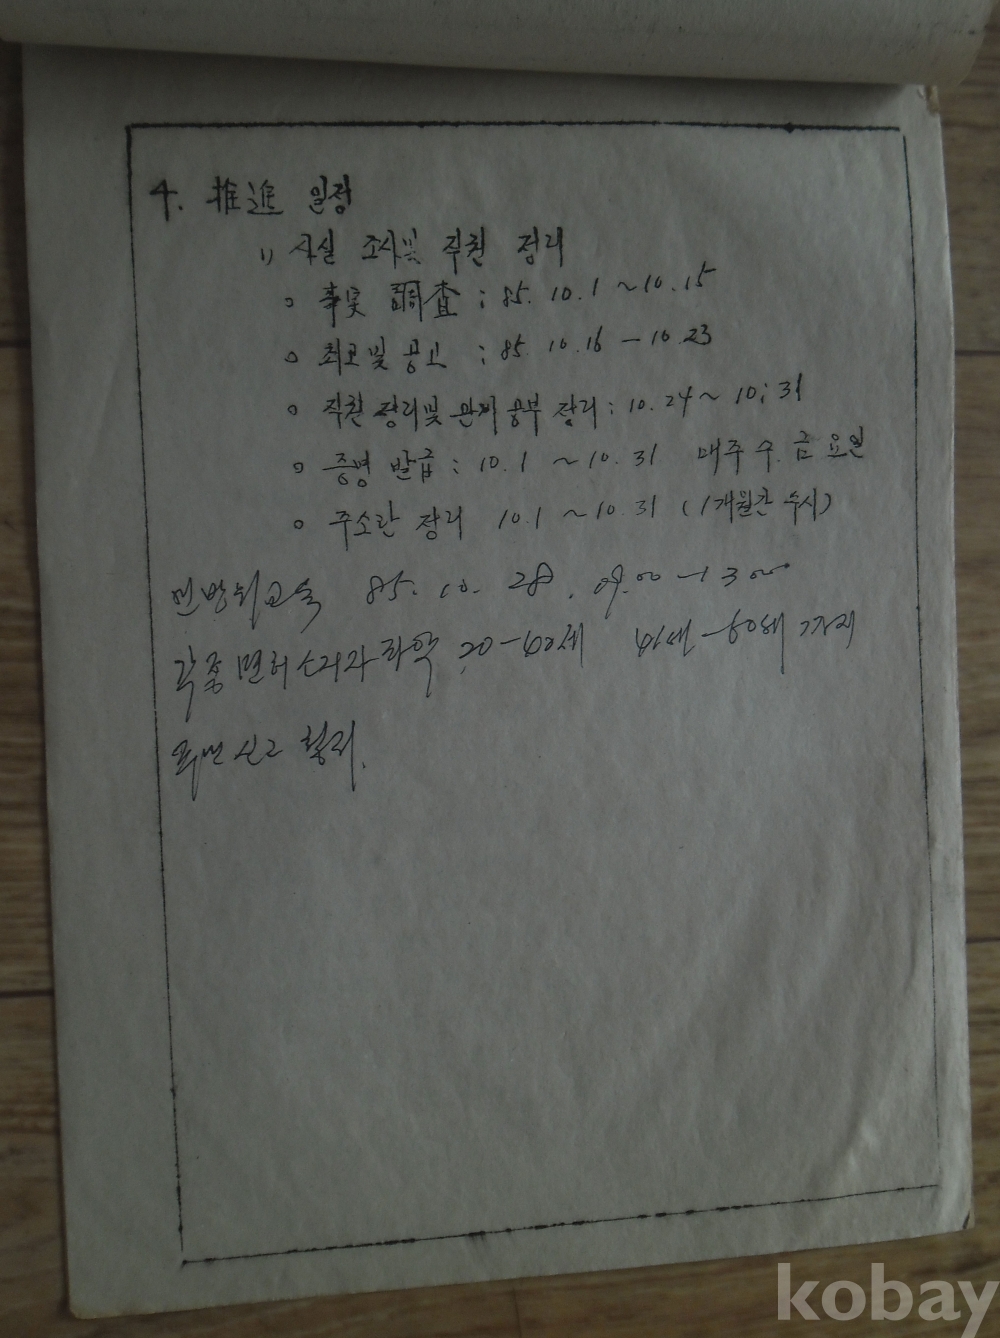 4. 推進 일정
1) 사실 조사및 직권 정리
o 事実 調査 : 85. 10. 1 ~ 10. 15
o 최고및 공고 : 85. 10. 16 - 10. 23
o 직권 정리및 관계 공부 정리 : 10. 24 ~ 10; 31
o 증명 발급 : 10. 1 ~ 10. 31 매주 수. 금 요일
o 주소란 정리 10. 1 ~ 10. 31 (1개월간 수시)
민방위교육 85. 10. 28. 09.00 - 13
각종 파악 20-40세 41세-50세 까지
신고
kobay